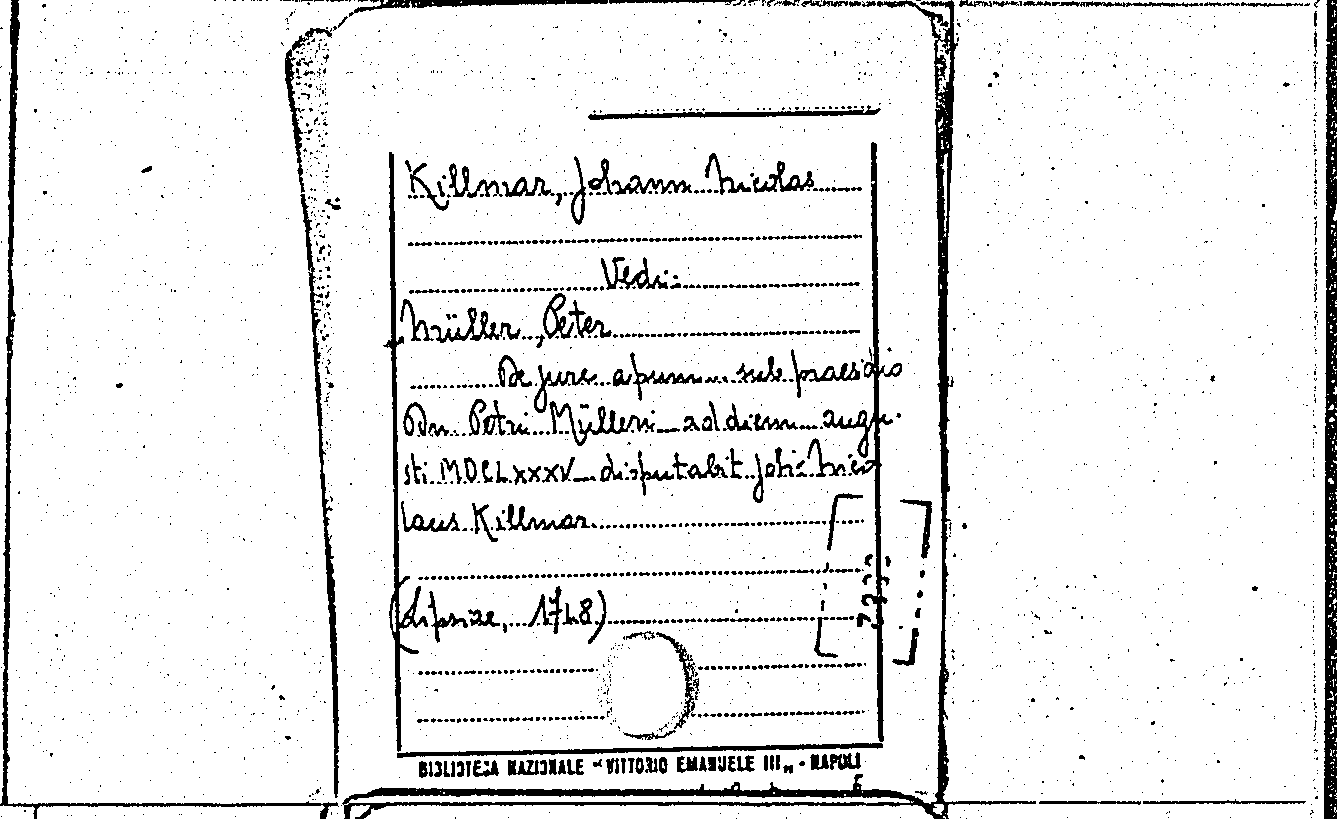 Killmar, Johann Nicolas
Vedi:
Müller, Peter
De jure apum... sub praesidio
Dn. Petri Mülleri_ ad diem_ augu-
sti MDCLXXXV_ disputabit Joh: Nico
laus Killmar.
(Lipsiae, 1748)
BIBLIOTECA NAZIONALE "VITTORIO EMANUELE III" - NAPOLI